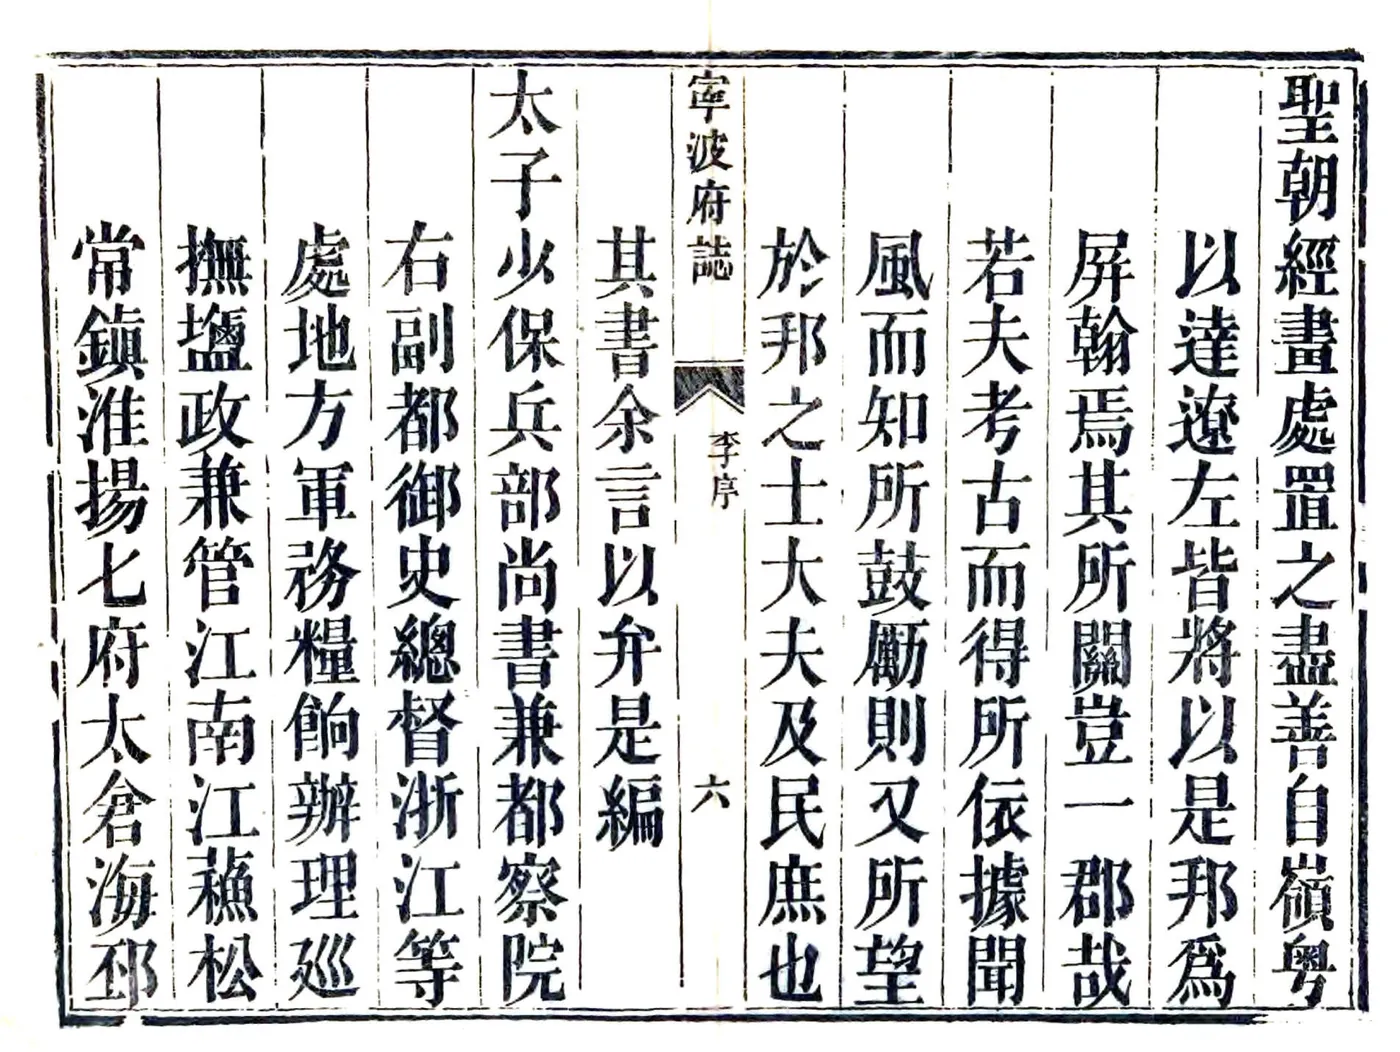 聖朝經畫處置之盡善自嶺粤
以達遼左皆將以是邦爲
屏翰焉其所關豈一郡哉
若夫考古而得所依據聞
風而知所鼓勵則又所望
於邦之士大夫及民庶也
寕波府誌
李序
六
其書余言以弁是編
太子少保兵部尚書兼都察院
右副都御史總督浙江等
處地方軍務糧餉辦理廵
撫鹽政兼管江南江蘓松
常鎮淮揚七府太倉海邳